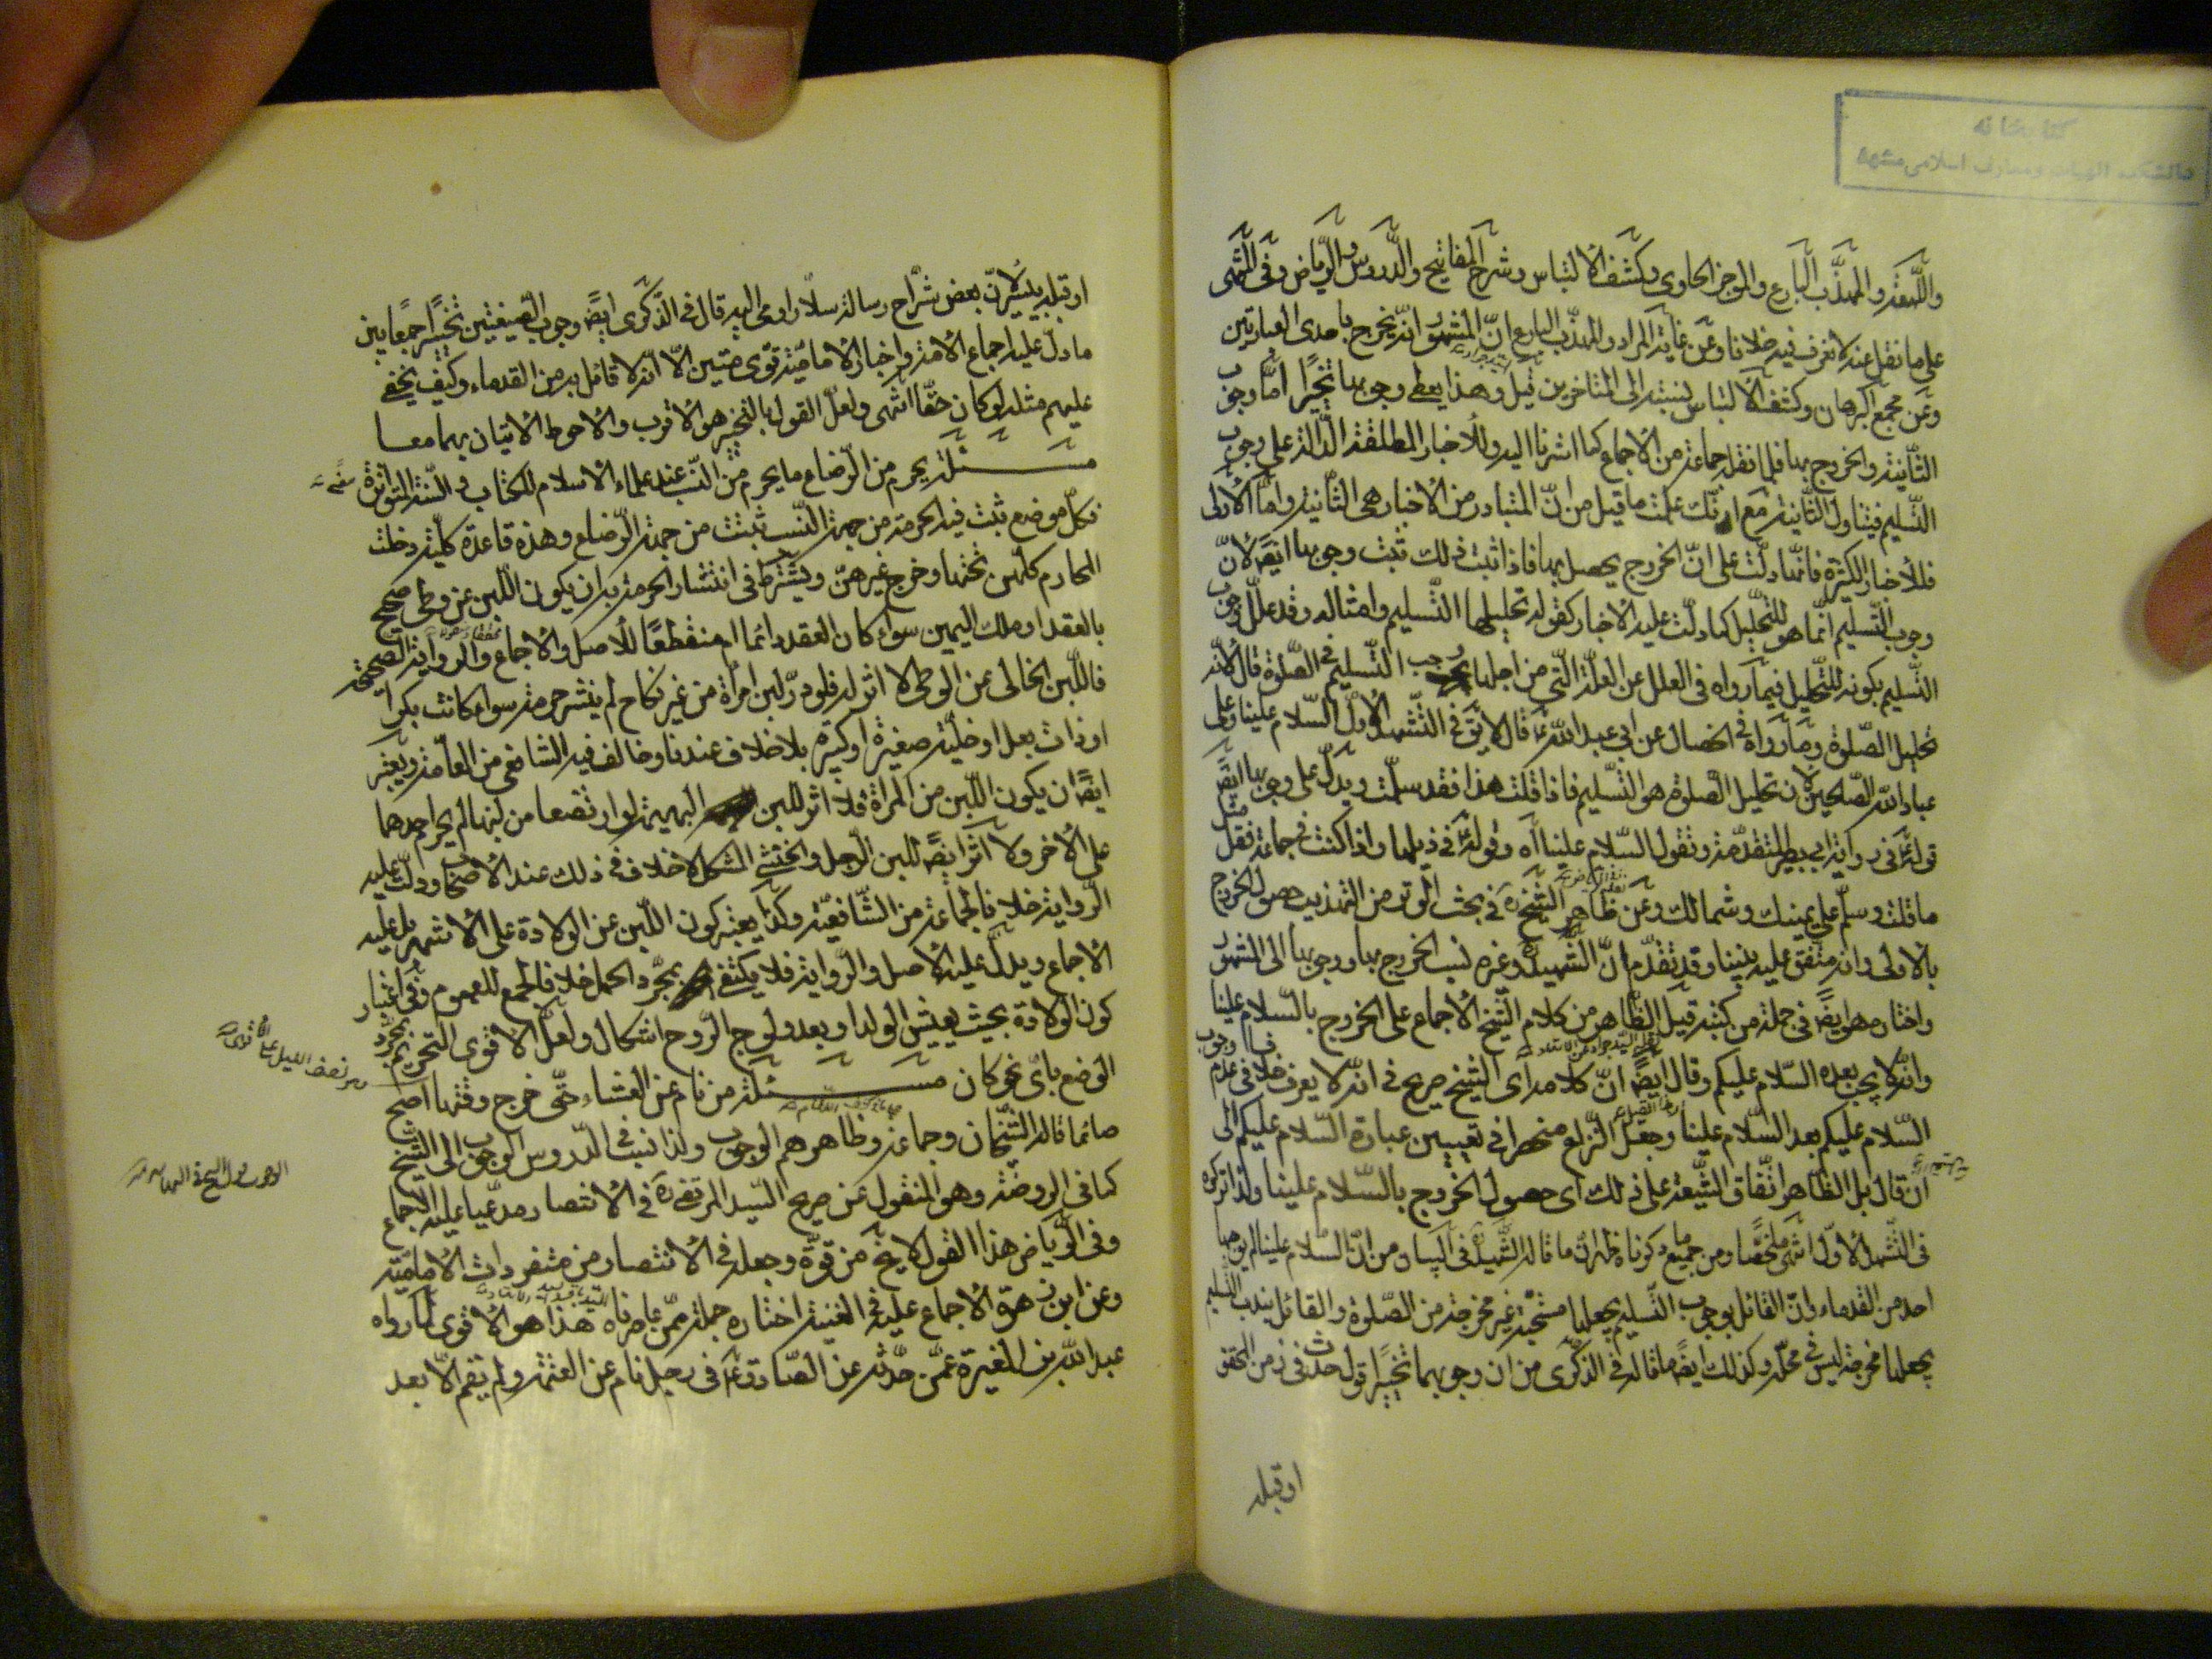 كتابخانه
دانشكده الهيات ومعارف اسلامى مشهد
واللمعة والمهذب البارع والموجز الحاوى وكشف الالتباس وشرح المفاتيح والدروس والرياض وفى المنتهى
على ما نقل عنه لا نعرف فيه خلافا وعن غاية المراد والمهذب البارع ان المشهور انه يخرج باحدى العبارتين
وعن مجمع البرهان وكشف الالتباس نسبته الى المتاخرين قيل وهذا يعطى وجوبها تخييرا اما وجوب
الثانية والخروج بها فلما نقله جماعة من الاجماع كما اشرنا اليه وللاخبار المطلقة الدالة على وجوب
التسليم فيتناول الثانية مع انك علمت ما قيل من ان المتبادر من الاخبار هى الثانية واما الاولى
فللاخبار الكثيرة فانها دلت على ان الخروج يحصل بها فاذا ثبت ذلك ثبت وجوبها ايضا لان
وجوب التسليم انما هو للتحليل كما دلت عليه الاخبار كقوله تحليلها التسليم وامثاله وقد علل وجوب
التسليم بكونه للتحليل فيما رواه فى العلل عن العلة التى من اجلها وجب التسليم فى الصلوة قال لانه
تحليل الصلوة وما رواه فى الخصال عن ابى عبد الله ع قال لا يق فى التشهد الاول السلام علينا وعلى
عباد الله الصالحين لان تحليل الصلوة هو التسليم فاذا قلت هذا فقد سلمت ويدل على وجوبها ايضا
قوله ع فى رواية ابى بصير المتقدمة وتقول السلام علينا اه وقوله ع فى ذيلها واذا كنت فى جماعة فقل مثل
ما قلت وسلم على يمينك وشمالك وعن ظاهر الشيخ ره فى بحث الوتر من التهذيب حصول الخروج
بالاولى وانه متفق عليه بيننا وقد تقدم ان الشهيد ره وغيره نسب الخروج بها ووجوبها الى المشهور
واختاره هو ايضا فى جملة من كتبه قيل الظاهر من كلام الشيخ الاجماع على الخروج بالسلام علينا
وانه لا يجب بعده السلام عليكم وقال ايضا ان كلامه اى الشيخ صريح فى انه لا يعرف خلافا فى عدم وجوب
السلام عليكم بعد السلام علينا وجعل النزاع منحصرا فى تعيين عبارة السلام عليكم الى
ان قال بل الظاهر اتفاق الشيعة على ذلك اى حصول الخروج بالسلام علينا ولذا تركوه
فى التشهد الاول انتهى ملخصا ومن جميع ما ذكرنا ظهر ان ما قاله الشهيد ره فى البيان من ان السلام علينا لم يوجبها
احد من القدماء وان القائل بوجوب التسليم يجعلها مستحبة غير مخرجة من الصلوة والقائل بندب التسليم
يجعلها مخرجة ليس فى محله وكذلك ايضا ما قاله فى الذكرى من ان وجوبهما تخييرا قول حدث فى زمن المحقق
او قبله
او قبله بيسير لان بعض شراح رسالة سلار اومى اليه قال فى الذكرى ايضا وجوب الصيغتين تخييرا جمعا بين
ما دل عليه اجماع الامة واخبار الامامية قوى متين الا انه لا قائل به من القدماء وكيف يخفى
عليهم مثله لو كان حقا انتهى ولعل القول بالتخيير هو الاقرب والاحوط الاتيان بهما معا
مسئلة يحرم من الرضاع ما يحرم من النسب عند علماء الاسلام للكتاب والسنة المتواترة
فكل موضع ثبت فيه الحرمة من جهة النسب ثبتت من جهة الرضاع وهذه قاعدة كلية دخلت
المحارم كلهن تحتها وخرج غيرهن ويشترط فى انتشار الحرمة به ان يكون اللبن عن وطى صحيح
بالعقد او ملك اليمين سواء كان العقد دائما ام منقطعا للاصل والاجماع والرواية الصحيحة
فاللبن الخالى عن الوطى لا اثر له فلو در لبن امراة من غير نكاح لم ينشر حرمة سواء كانت بكرا
او ذات بعل او خلية صغيرة او كبيرة بلا خلاف عندنا وخالف فيه الشافعى من العامة ويعتبر
ايضا ان يكون اللبن من المراة فلا اثر للبن البهيمة لو ارتضعا من لبنها لم يحرم احدهما
على الاخر ولا اثر ايضا للبن الرجل والخنثى المشكل لا خلاف فى ذلك عند الاصحاب ودلت عليه
الرواية خلافا لجماعة من الشافعية وكذا يعتبر كون اللبن عن الولادة على الاشهر بل عليه
الاجماع ويدل عليه الاصل والرواية فلا يكتفى بمجرد الحمل خلافا لجمع للعموم وفى اعتبار
كون الولادة بحيث يعيش الولد او بعد ولوج الروح اشكال ولعل الاقوى التحريم بمجرد
الوضع باى نحو كان مسئلة من نام عن العشاء حتى خرج وقتها اصبح
صائما قاله الشيخان وجماعة وظاهرهم الوجوب ولذا نسب فى الدروس الوجوب الى الشيخ
كما فى الروضة وهو المنقول عن صريح السيد المرتضى ره فى الانتصار مدعيا عليه الاجماع
وفى الرياض هذا القول لا يخ من قوة وجعله فى الانتصار من متفردات الامامية
وعن ابن زهرة الاجماع عليه فى الغنية اختاره جملة ممن عاصرناه هذا هو الاقوى لما رواه
عبد الله بن المغيرة عمن حدثه عن الصادق ع فى رجل نام عن العتمة ولم يقم الا بعد